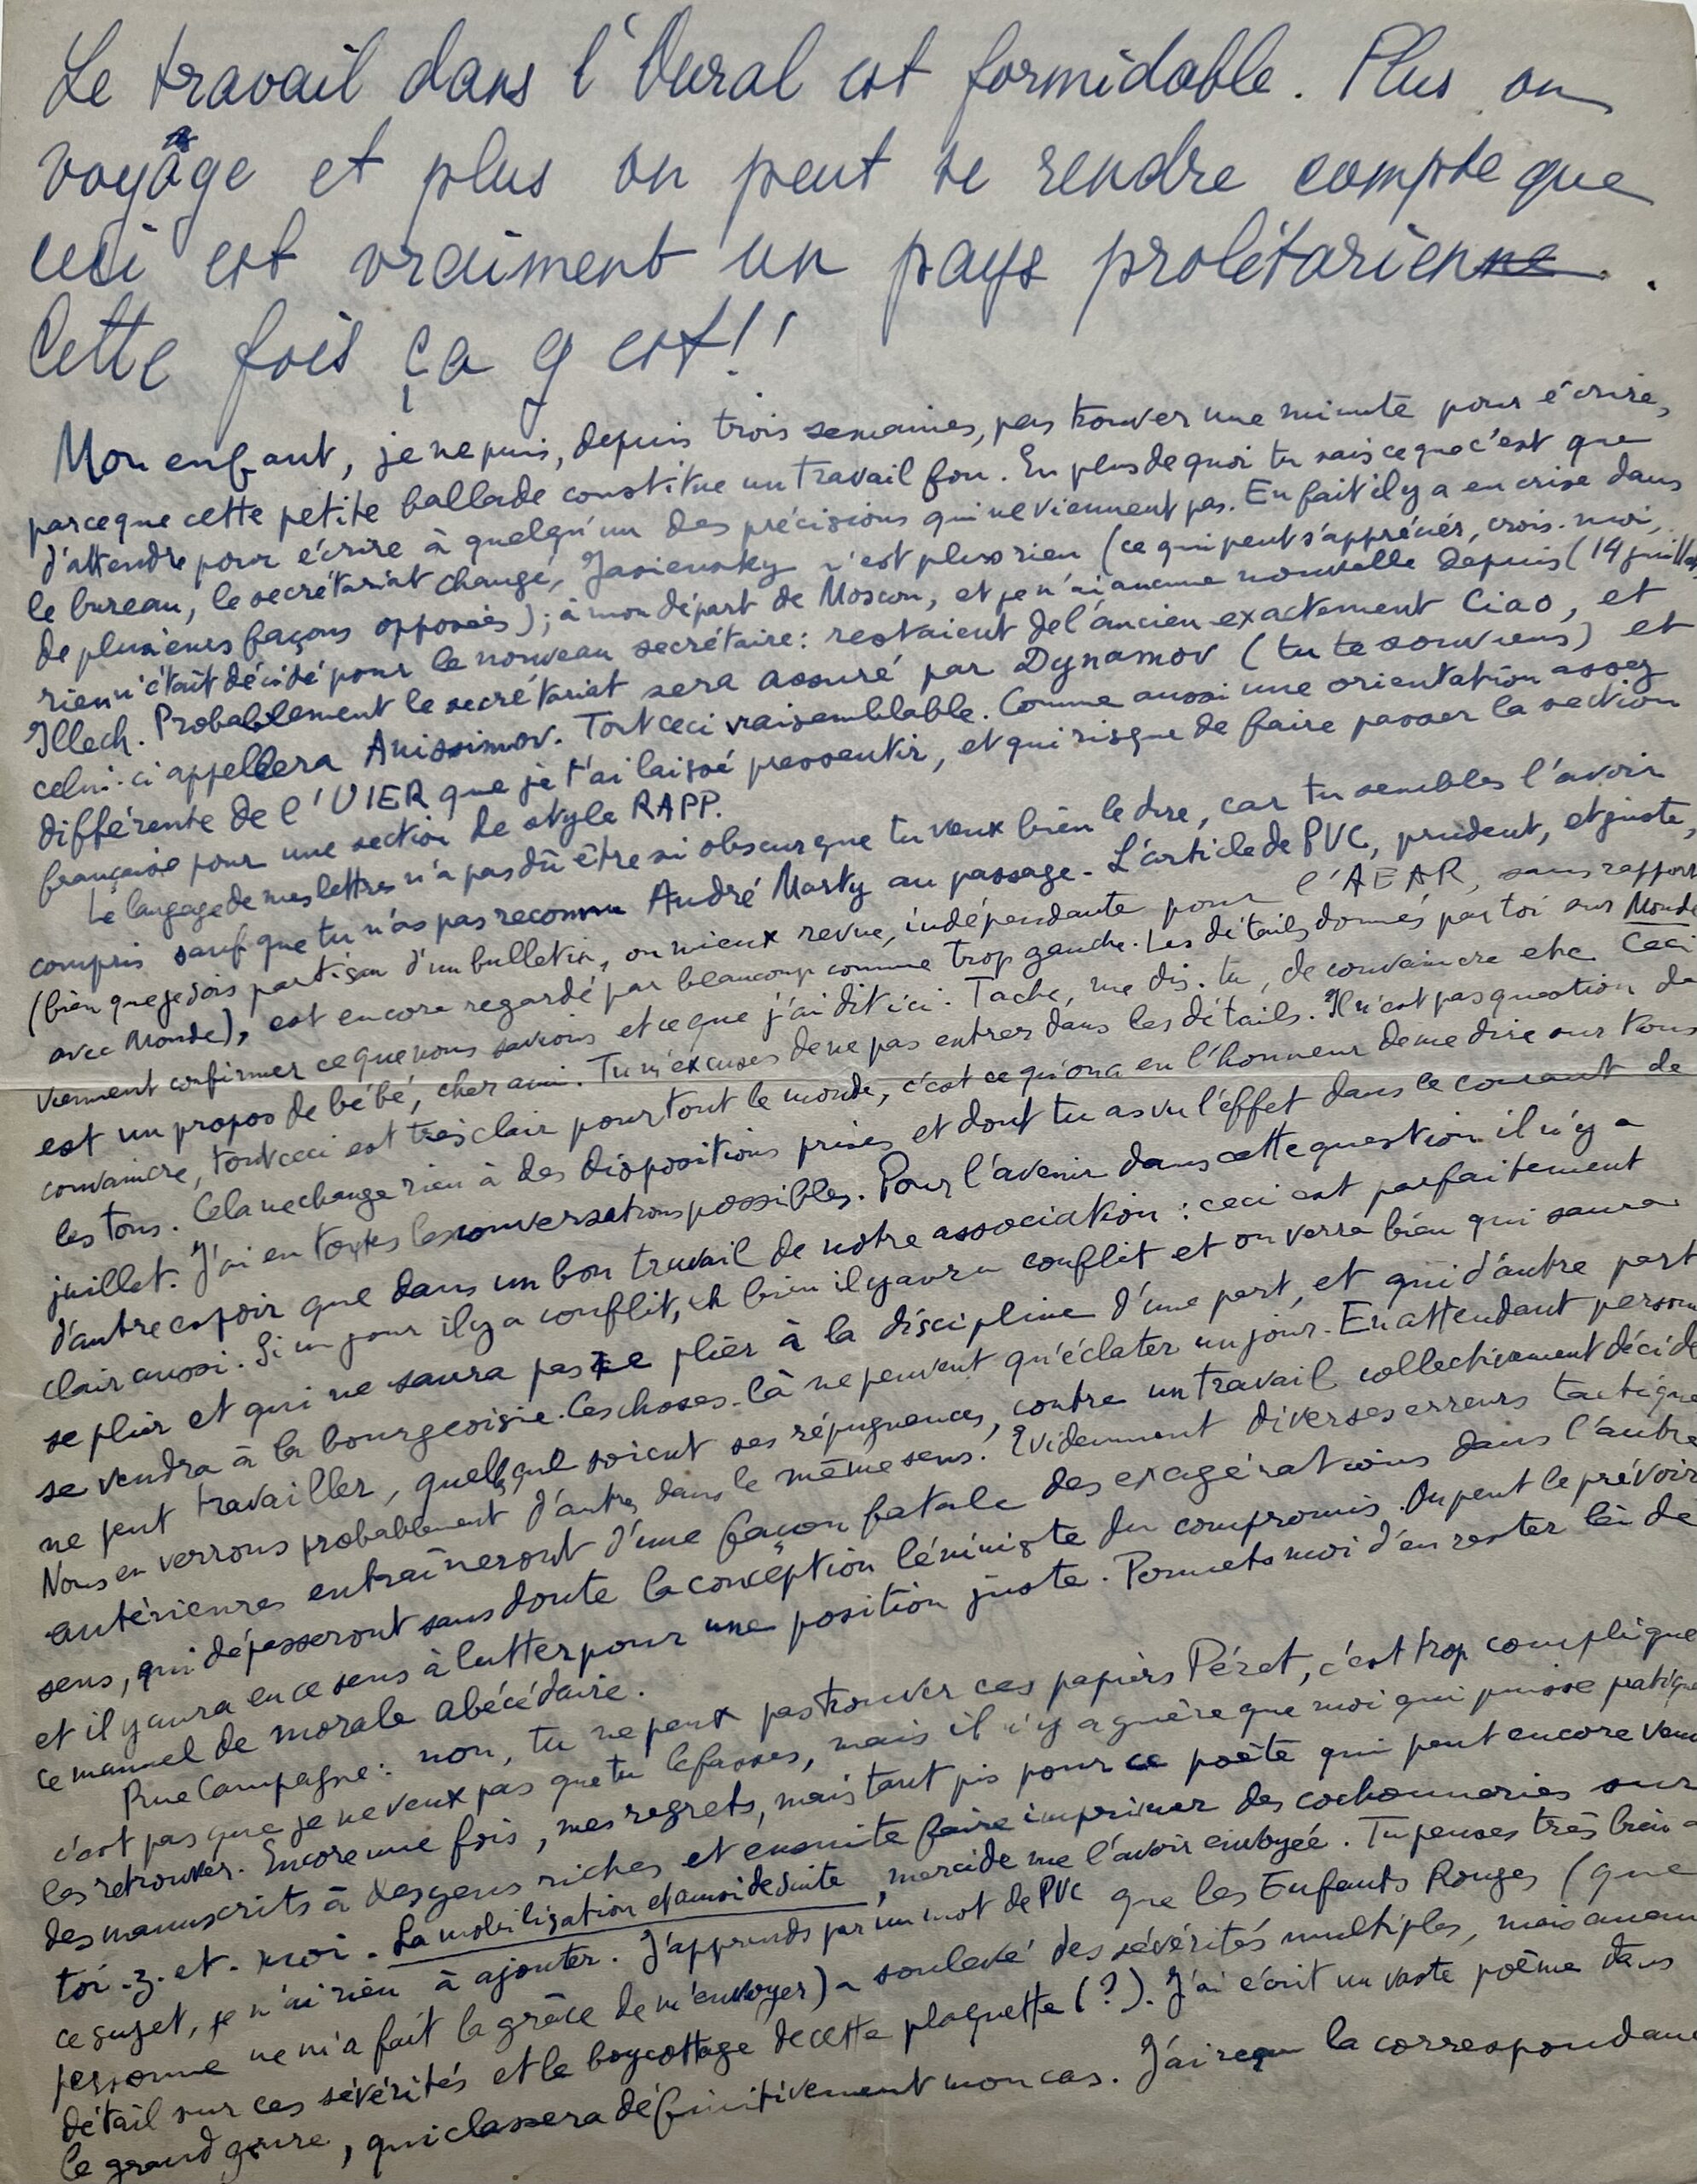 Le travail dans l'Oural est formidable. Plus on
voyage et plus on peut se rendre compte que
ceci est vraiment un pays prolétarienne.
Cette fois ça y est!!
Mon enfant, je ne puis, depuis trois semaines, pas trouver une minute pour écrire,
parceque cette petite ballade constitue un travail fou. En plus de quoi tu sais ce que c'est que
d'attendre pour écrire à quelqu'un des précisions qui ne viennent pas. En fait il y a eu crise dans
le bureau, le secrétariat changé, Jasiensky n'est plus rien (ce qui peut s'apprécier, crois-moi,
de plusieurs façons opposées); à mon départ de Moscou, et je n'ai aucune nouvelle depuis (14 juillet)
rien n'était décidé pour le nouveau secrétaire: restaient de l'ancien exactement Ciao, et
Illech. Probablement le secrétariat sera assuré par Dynamov (tu te souviens) et
celui-ci appellera Anissimov. Tout ceci vraisemblable. Comme aussi une orientation assez
différente de l'UIER que je t'ai laissé pressentir, et qui risque de faire passer la section
française pour une section de style RAPP.
Le langage de mes lettres n'a pas dû être si obscur que tu veux bien le dire, car tu sembles l'avoir
compris sauf que tu n'as pas reconnu André Marty au passage. L'article de PVC, prudent, et juste,
(bien que je sois partisan d'un bulletin, ou mieux revue, indépendante pour l'AEAR, sans rapport
avec Monde), est encore regardé par beaucoup comme trop gauche. Les détails donnés par toi sur Monde
viennent confirmer ce que nous savions et ce que j'ai dit ici. Tache, me dis-tu, de convaincre etc. Ceci
est un propos de bébé, cher ami. Tu m'excuses de ne pas entrer dans les détails. Il n'est pas question de
convaincre, tout ceci est très clair pour tout le monde, c'est ce qu'on a eu l'honneur de me dire sur tous
les tons. Cela ne change rien à des dispositions prises et dont tu as vu l'effet dans le courant de
juillet. J'ai eu toutes les conversations possibles. Pour l'avenir dans cette question il n'y a
d'autre espoir que dans un bon travail de notre association: ceci est parfaitement
clair aussi. Si un jour il y a conflit, eh bien il y aura conflit et on verra bien qui saura
se plier et qui ne saura pas se plier à la discipline d'une part, et qui d'autre part
se vendra à la bourgeoisie. Ces choses-là ne peuvent qu'éclater un jour. En attendant personne
ne peut travailler, quelles que soient ses répugnances, contre un travail collectivement décidé
Nous en verrons probablement d'autres dans le même sens. Evidemment diverses erreurs tactiques
antérieures entraîneront d'une façon fatale des exagérations dans l'autre
sens, qui dépasseront sans doute la conception léniniste du compromis. On peut le prévoir
et il y aura en ce sens à lutter pour une position juste. Permets moi d'en rester là de
ce manuel de morale abécédaire.
Rue Campagne: non, tu ne peux pas trouver ces papiers Péret, c'est trop compliqué
c'est pas que je ne veux pas que tu le fasses, mais il n'y a guère que moi qui puisse pratiquement
les retrouver. Encore une fois, mes regrets, mais tant pis pour ce poète qui peut encore vendre
des manuscrits à des gens riches et ensuite faire imprimer des cochonneries sur
toi-z-et-moi. La mobilisation et ainsi de suite, merci de me l'avoir envoyée. Tu penses très bien à
ce sujet, je n'ai rien à ajouter. J'apprends par un mot de PVC que les Enfants Rouges (que
personne ne m'a fait la grâce de m'envoyer) a soulevé des sévérités multiples, mais aucun
détail sur ces sévérités et le boycottage de cette plaquette (?). J'ai écrit un vaste poème dans
le grand genre, qui classera définitivement mon cas. J'ai reçu la correspondance